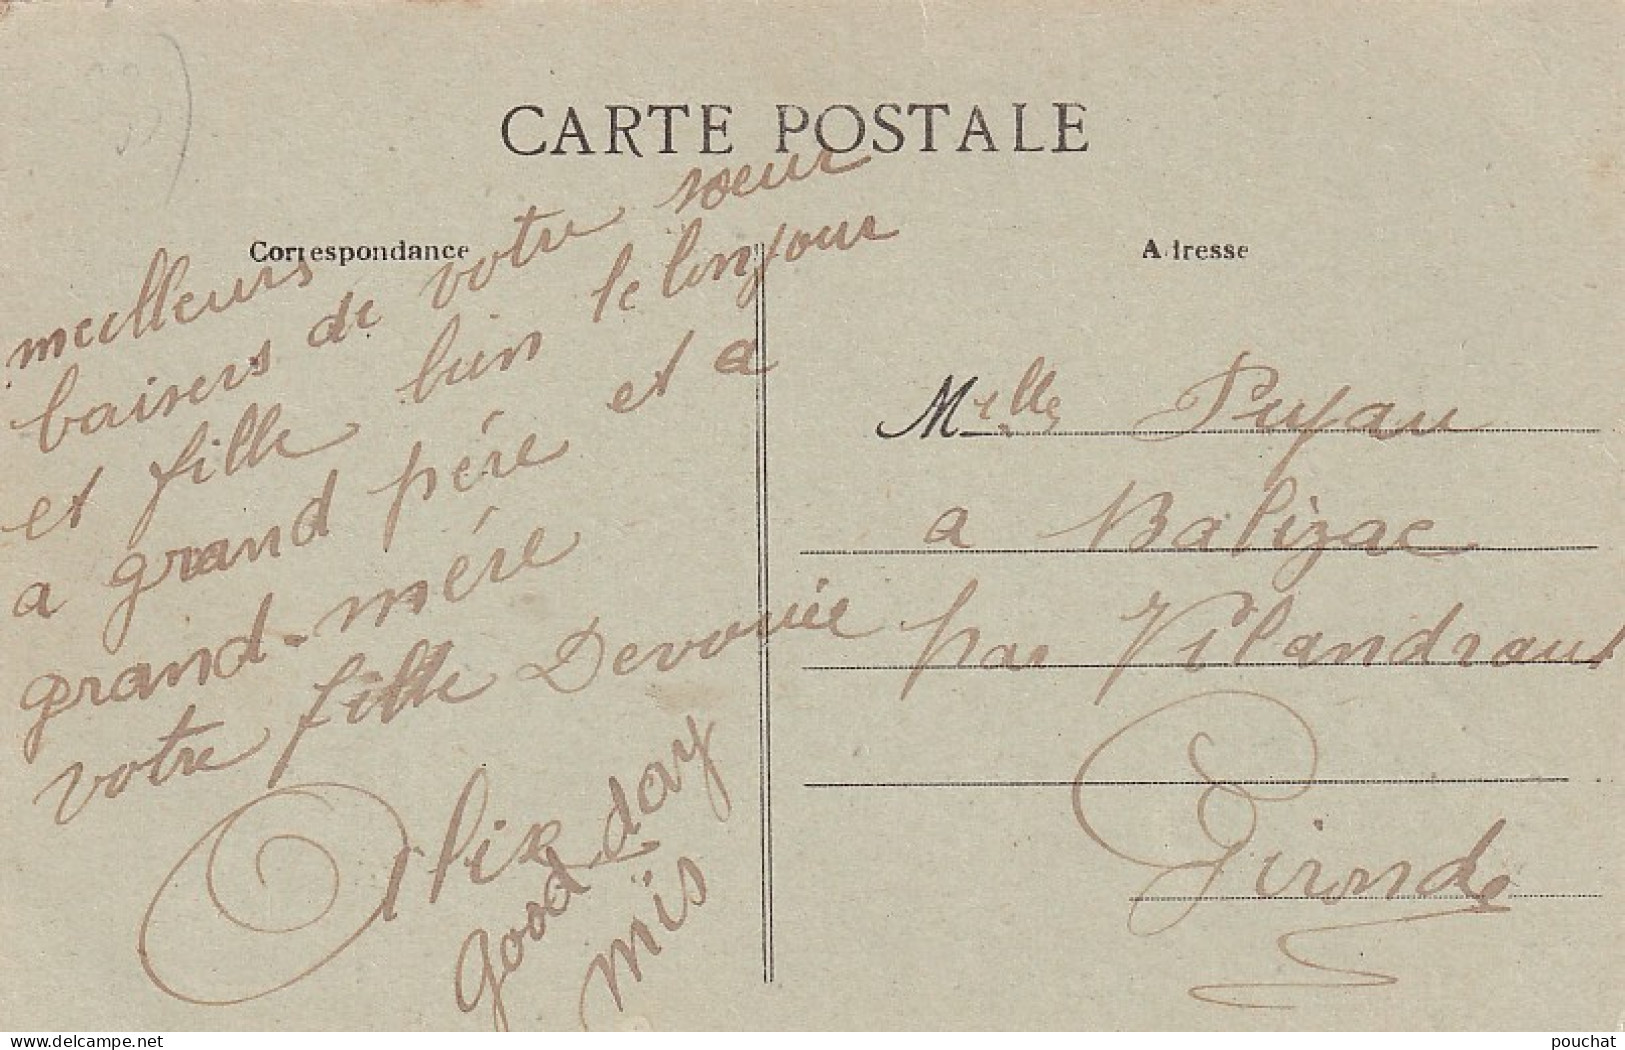 CARTE POSTALE
Correspondance
meilleurs
baisers de votre sœur
et fille bien le bonjour
a grand père et a
grand-mère
votre fille Devouée
Alix
good day
mïs
Adresse
Melle Pujau
a Balizac
par Vilandraut
Gironde
delcampe.net
pouchat